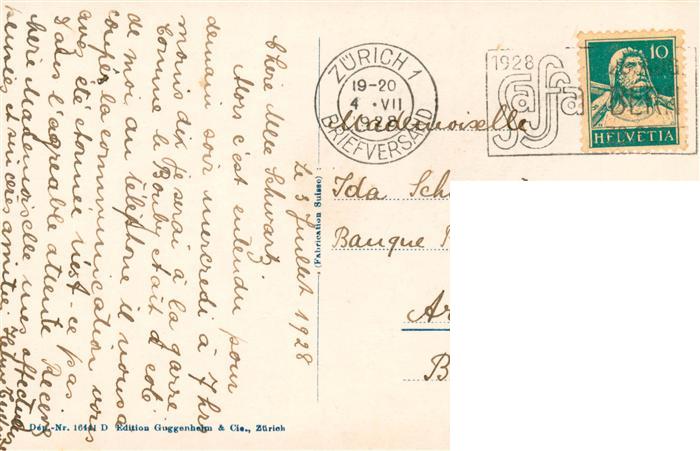 Le 3 Juillet 1928
Chère Mlle Schwartz,
Alors c'est entendu pour
demain soir mercredi à 7 hrs
moins dix je serai à la garre
Comme le Bouby était à coté
de moi au téléphone il nous a
coupé la communication vous
avez été étonnée n'est-ce pas
Dans l'agréable attente Recevez
chère Mademoiselle mes affectueuses
pensées et sincères amitiés
(Fabrication Suisse)
Dép.-Nr. 16441 D Edition Guggenheim & Cie., Zürich
ZÜRICH 1
19-20
4. VII
1928
BRIEFVERSAND
1928
Saffa BERN
10
HELVETIA
Mademoiselle
Ida Sch
Banque
A
B